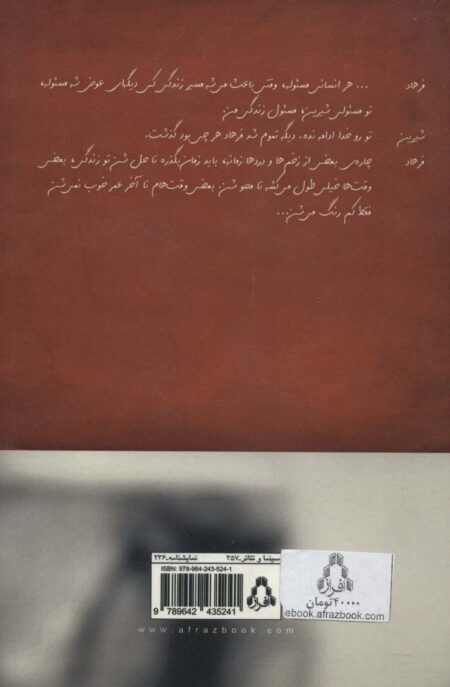 فرهاد ... هر انسانی مسئوله، وقتی باعث می‌شه مسیر زندگی کس دیگه‌ای عوض شه مسئوله،
تو مسئولی شیرین، مسئول زندگی من.
شیرین تو رو خدا ادامه نده. دیگه تموم شد فرهاد هر چی بود گذشت.
فرهاد چاره‌ی بعضی از زخم‌ها و دردها زمانه، باید زمان بگذره تا حل شن تو زندگی، بعضی
وقت‌ها خیلی طول می‌کشه تا محو شن. بعضی وقت‌هام تا آخر عمر خوب نمی‌شن
فقط کم رنگ می‌شن...
سینما و تئاتر-۳۵۷ نمایشنامه-۲۳۶
ISBN: 978-964-243-524-1
9 789642 435241
افراز
افراز
۴۰۰۰۰تومان
ebook.afrazbook.com
www.afrazbook.com